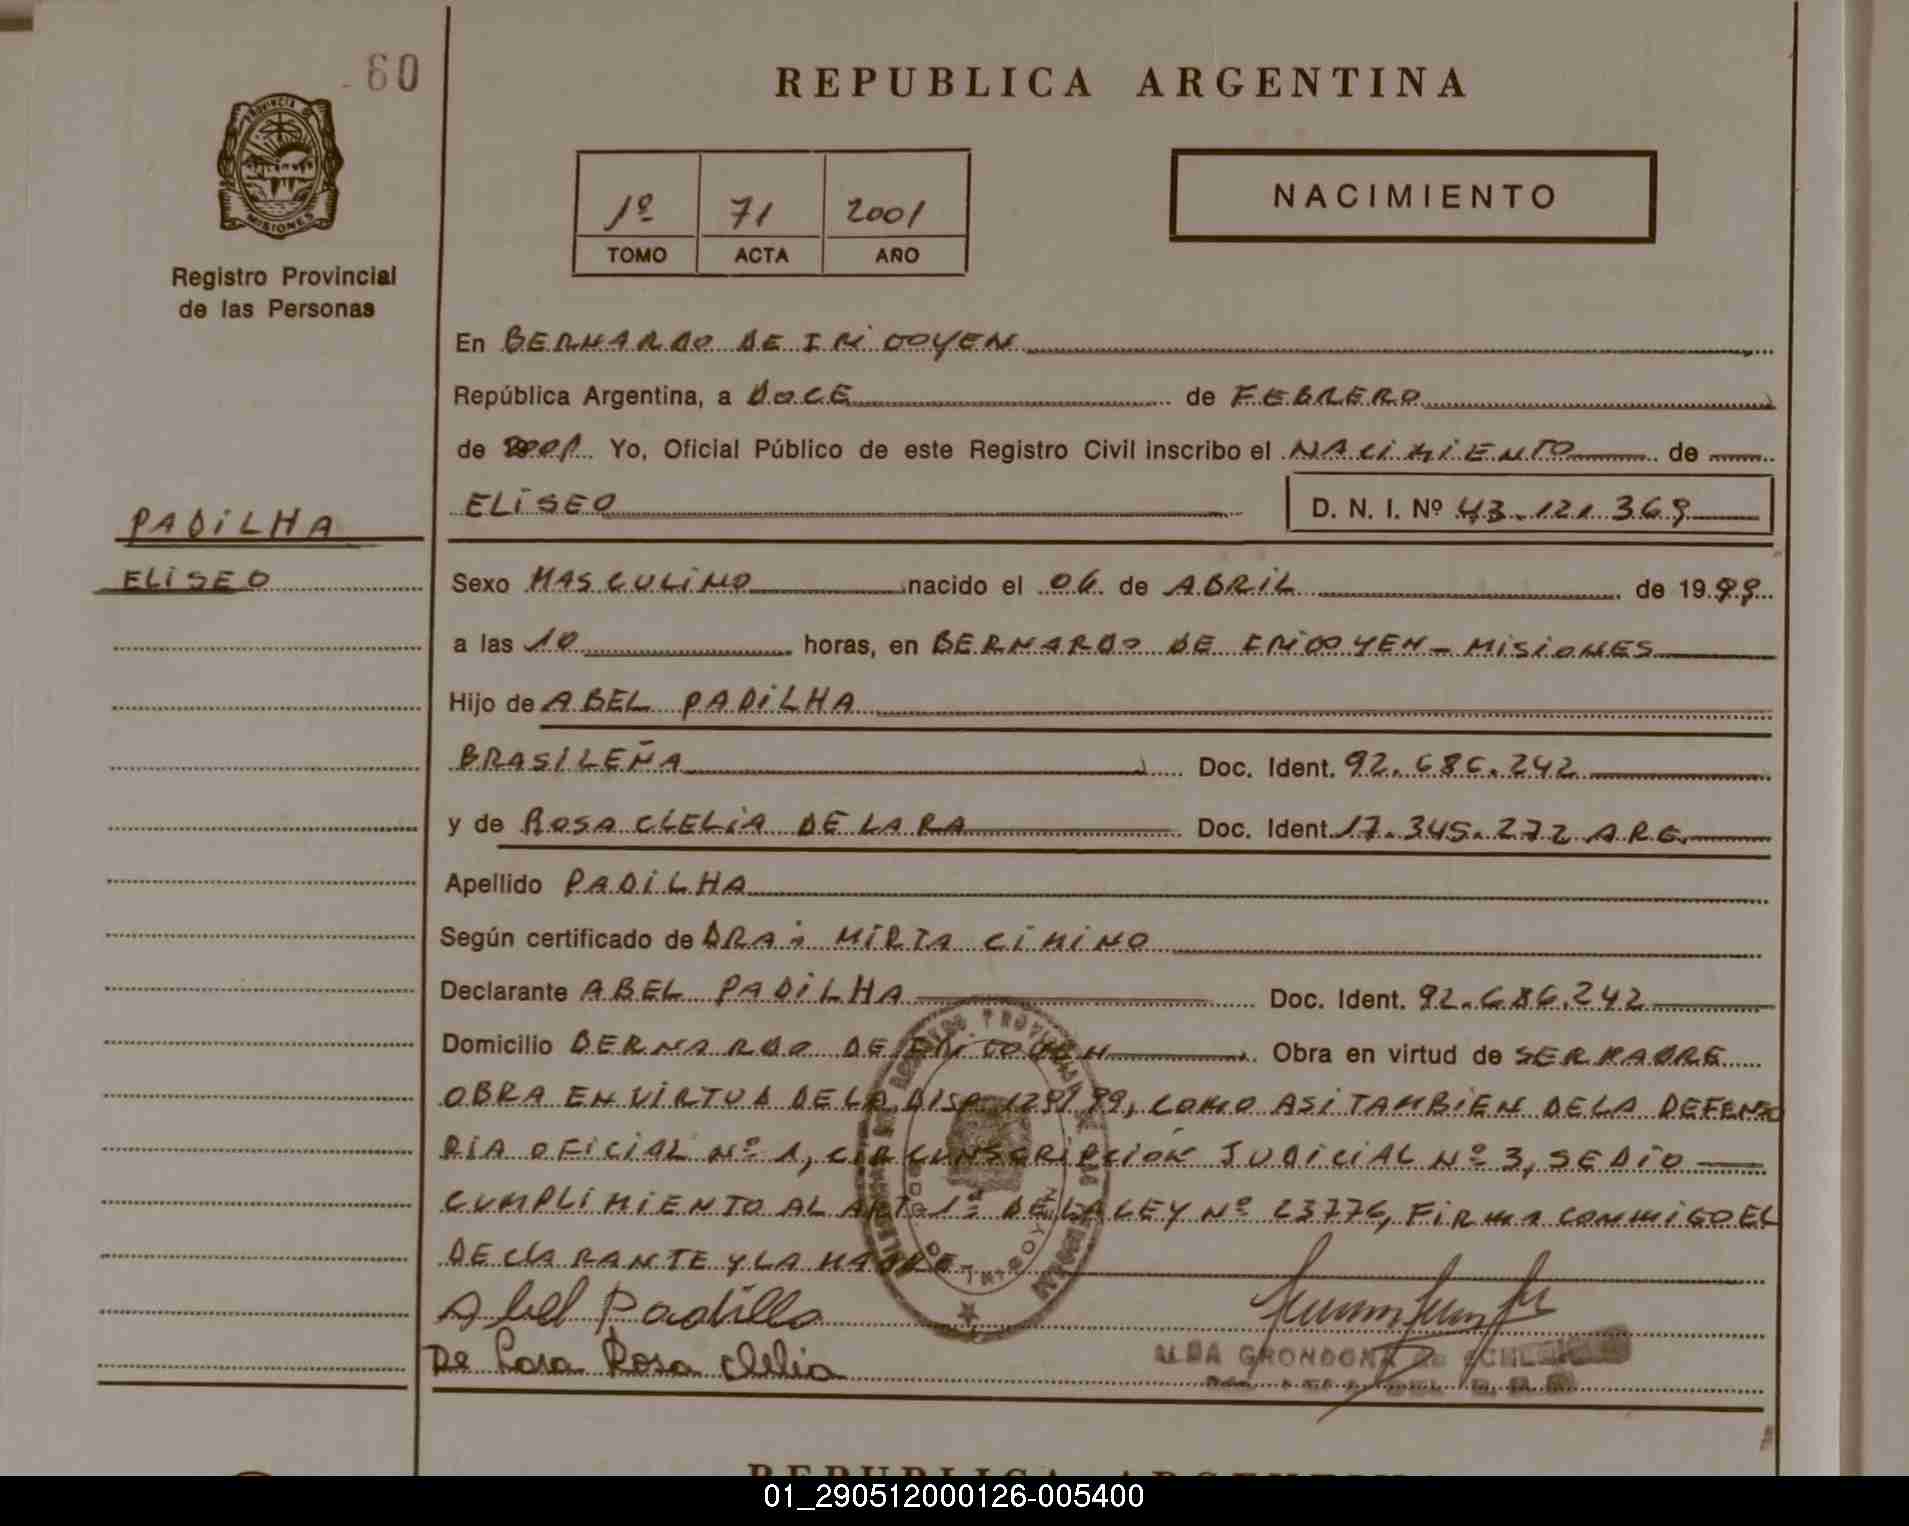 60
REPUBLICA ARGENTINA
PROVINCIA DE
MISIONES
Registro Provincial
de las Personas
1º 71 2001
TOMO ACTA AÑO
NACIMIENTO
En BERNARDO DE IRIGOYEN
República Argentina, a DOCE de FEBRERO
de 2001 Yo, Oficial Público de este Registro Civil inscribo el NACIMIENTO de
ELISEO D. N. I. Nº 43.121.369
PADILHA
ELISEO
Sexo MASCULINO nacido el 06 de ABRIL de 1999
a las 10 horas, en BERNARDO DE IRIGOYEN - MISIONES
Hijo de ABEL PADILHA
BRASILEÑA Doc. Ident. 92.686.242
y de ROSA CLELIA DE LARA Doc. Ident. 17.345.272 ARG.
Apellido PADILHA
Según certificado de DRA: MIRTA CIMINO
Declarante ABEL PADILHA Doc. Ident. 92.686.242
Domicilio BERNARDO DE IRIGOYEN Obra en virtud de SER PADRE
OBRA EN VIRTUD DE LA DISP. 129/99, COMO ASI TAMBIEN DE LA DEFENSO
RIA OFICIAL Nº 1, CIRCUNSCRIPCIÓN JUDICIAL Nº 3, SE DIO
CUMPLIMIENTO AL ART 1º DE LA LEY Nº 23776, FIRMA CONMIGO EL
DECLARANTE Y LA MADRE
Abel Padilla
De Lara Rosa Clelia
ALBA GRONDONA de
REPUBLICA ARGENTINA
01_290512000126-005400